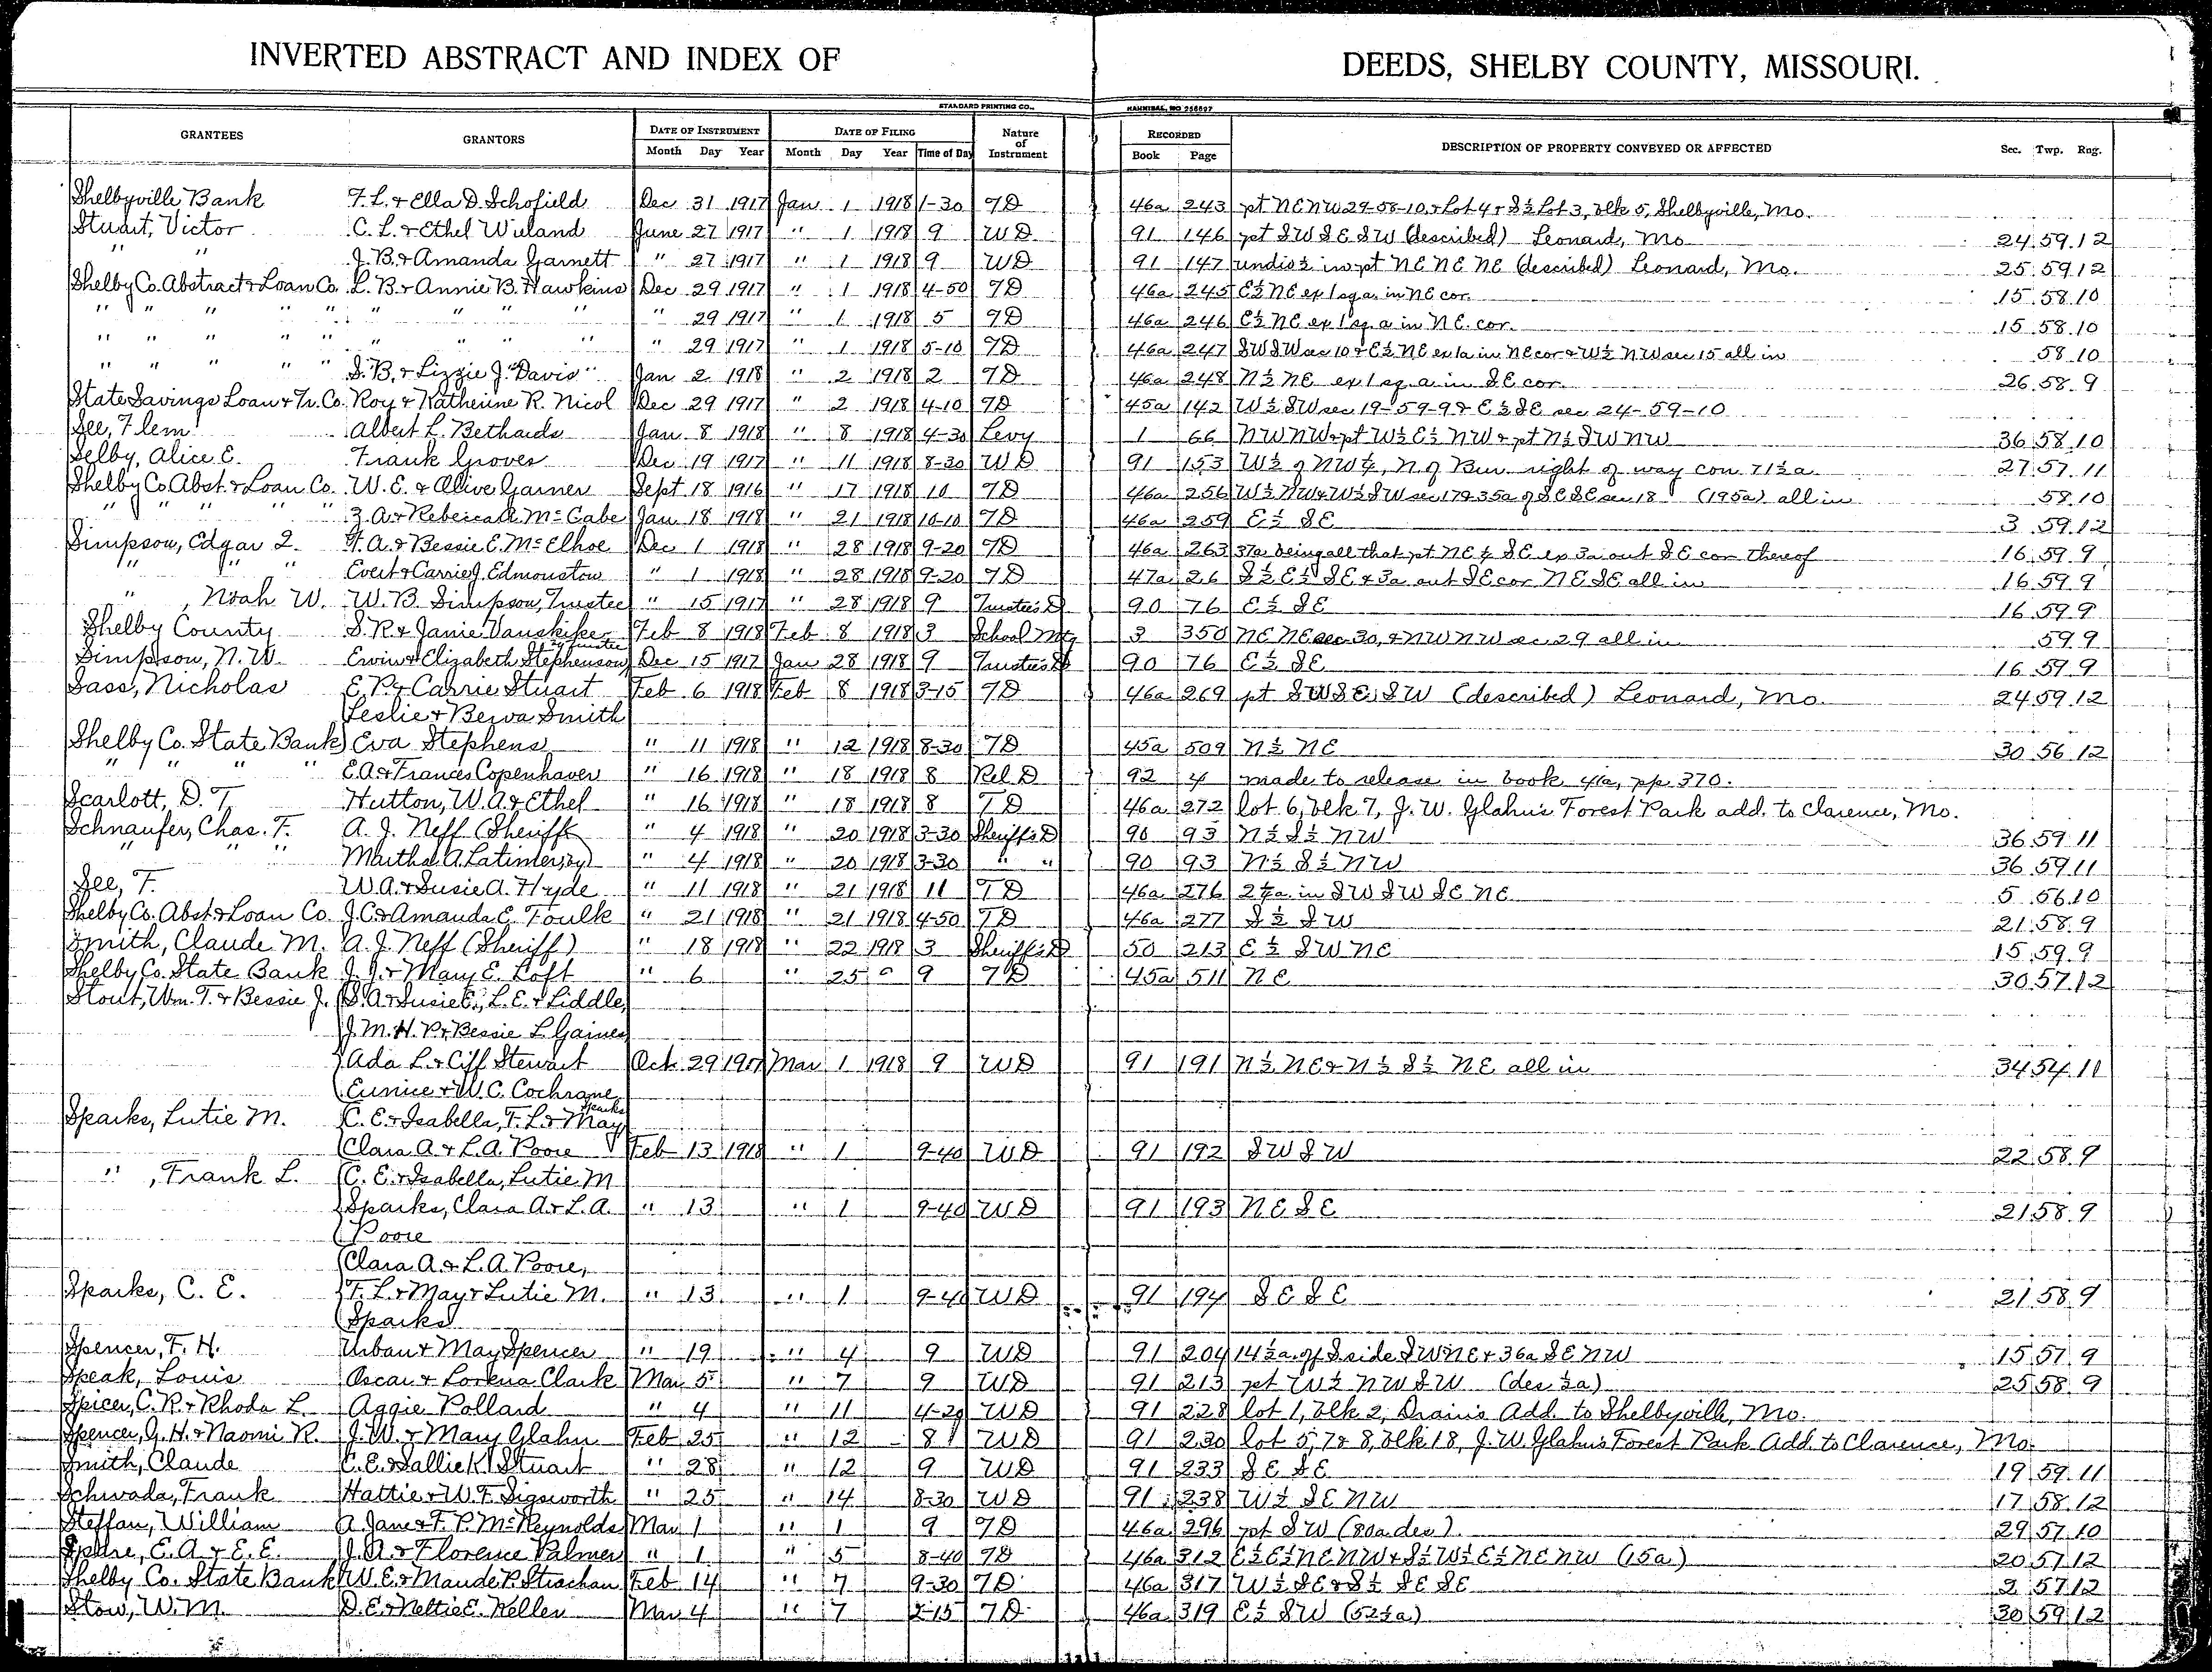 INVERTED ABSTRACT AND INDEX OF DEEDS, SHELBY COUNTY, MISSOURI.
STANDARD PRINTING CO., HANNIBAL, MO
GRANTEES GRANTORS DATE OF INSTRUMENT DATE OF FILING Nature of Instrument RECORDED DESCRIPTION OF PROPERTY CONVEYED OR AFFECTED Sec. Twp. Rng.
Month Day Year Month Day Year Time of Day Book Page
Shelbyville Bank F. L. & Ella D. Schofield Dec 31 1917 Jan 1 1918 1-30 TD 46a 243 pt NE NW 29-58-10 & Lot 4 & S½ Lot 3, blk 5, Shelbyville, Mo.
Stuart, Victor C. L. & Ethel Wieland June 27 1917 " 1 1918 9 WD 91 146 pt SW SE SW (described) Leonard, Mo 24 59 12
" " J. B. & Amanda Garnett " 27 1917 " 1 1918 9 WD 91 147 undis ½ in pt NE NE NE (described) Leonard, Mo. 25 59 12
Shelby Co. Abstract & Loan Co. L. B. & Annie B. Hawkins Dec 29 1917 " 1 1918 4-50 TD 46a 245 E½ NE ex 1 sq a. in NE cor. 15 58 10
" " " " " " " " " " " 29 1917 " 1 1918 5 TD 46a 246 E½ NE ex 1 sq. a in NE. cor. 15 58 10
" " " " " " " " " " " 29 1917 " 1 1918 5-10 TD 46a 247 SW SW sec 10 & E½ NE ex 1a in NE cor & W½ NW sec 15 all in 58 10
" " " " " S. B. & Lizzie J. Davis Jan 2 1918 " 2 1918 2 TD 46a 248 N½ NE ex 1 sq. a in SE cor. 26 58 9
State Savings Loan & Tr. Co. Roy & Katherine R. Nicol Dec 29 1917 " 2 1918 4-10 TD 45a 142 W½ SW sec 19-59-9 & E½ SE sec 24-59-10
See, Flem Albert L. Bethards Jan 8 1918 " 8 1918 4-30 Levy 1 66 NW NW & pt W½ E½ NW & pt N½ SW NW 36 58 10
Selby, Alice E. Frank Groves Dec 19 1917 " 11 1918 8-30 WD 91 153 W½ of NW¼, N of Bur. right of way con 71½ a. 27 57 11
Shelby Co. Abst. & Loan Co. W. E. & Olive Garner Sept 18 1916 " 17 1918 10 TD 46a 256 W½ NW & W½ SW sec 17 & 35a of SE SE sec 18 (195a) all in 58 10
" " " " " Z. A. & Rebecca A. McCabe Jan 18 1918 " 21 1918 10-10 TD 46a 259 E½ SE 3 59 12
Simpson, Edgar L. H. A. & Bessie E. McElhoe Dec 1 1918 " 28 1918 9-20 TD 46a 263 37a being all that pt NE¼ SE ex 3a out SE cor thereof 16 59 9
" " " Evert & Carrie J. Edmonston " 1 1918 " 28 1918 9-20 TD 47a 26 S½ E½ SE & 3a out SE cor NE SE all in 16 59 9
" , Noah W. W. B. Simpson, Trustee " 15 1917 " 28 1918 9 Trustee's D 90 76 E½ SE 16 59 9
Shelby County S. R. & Janie Vanskike Feb 8 1918 Feb 8 1918 3 School Mtg 3 350 NE NE sec 30, & NW NW sec 29 all in 59 9
by trustee
Simpson, N. W. Erwin & Elizabeth Stephenson Dec 15 1917 Jan 28 1918 9 Trustee's D 90 76 E½ SE 16 59 9
Sass, Nicholas E. P. & Carrie Stuart Feb 6 1918 Feb 8 1918 3-15 TD 46a 269 pt SW SE SW (described) Leonard, Mo. 24 59 12
Leslie & Berva Smith
Shelby Co. State Bank Eva Stephens " 11 1918 " 12 1918 8-30 TD 45a 509 N½ NE 30 56 12
" " " " E. A. & Frances Copenhaver " 16 1918 " 18 1918 8 Rel D 92 4 made to release in book 46a, pp. 370.
Scarlott, D. T. Hutton, W. A. & Ethel " 16 1918 " 18 1918 8 TD 46a 272 lot 6, blk 7, J. W. Glahn's Forest Park add. to Clarence, Mo.
Schnaufer, Chas. F. A. J. Neff (Sheriff) " 4 1918 " 20 1918 3-30 Sheriff's D 90 93 N½ S½ NW 36 59 11
" " " Martha A. Latimer, by " 4 1918 " 20 1918 3-30 " " 90 93 N½ S½ NW 36 59 11
See, F. W. A. & Susie A. Hyde " 11 1918 " 21 1918 11 TD 46a 276 2½a. in SW SW SE NE 5 56 10
Shelby Co. Abst. & Loan Co. J. C. & Amanda E. Foulk " 21 1918 " 21 1918 4-50 TD 46a 277 S½ SW 21 58 9
Smith, Claude M. A. J. Neff (Sheriff) " 18 1918 " 22 1918 3 Sheriff's D 50 213 E½ SW NE 15 59 9
Shelby Co. State Bank J. J. & Mary E. Loft " 6 " 25 " 9 TD 45a 511 NE 30 57 12
Stout, Wm. T. & Bessie J. S. A. & Susie E., L. E. & Liddle,
J. M. H. P. & Bessie L. Gaines
Ada L. & Ciff Stewart Oct 29 1917 Mar 1 1918 9 WD 91 191 N½ NE & N½ S½ NE all in 34 54 11
Eunice & W. C. Cochrane
Sparks, Lutie M. C. E. & Isabella, F. L. & May Sparks
Clara A. & L. A. Poore Feb 13 1918 " 1 9-40 WD 91 192 SW SW 22 58 9
" , Frank L. C. E. & Isabella, Lutie M
Sparks, Clara A. & L. A. " 13 " 1 9-40 WD 91 193 NE SE 21 58 9
Poore
Clara A. & L. A. Poore,
Sparks, C. E. F. L. & May & Lutie M. " 13 " 1 9-40 WD 91 194 SE SE 21 58 9
Sparks
Spencer, F. H. Urban & May Spencer " 19 " 4 9 WD 91 204 14½a. of S side SW NE & 36a SE NW 15 57 9
Speak, Louis Oscar & Lorena Clark Mar 5 " 7 9 WD 91 213 pt W½ NW SW (des ½a) 25 58 9
Spicer, C. R. & Rhoda L. Aggie Pollard " 4 " 11 4-20 WD 91 228 lot 1, blk 2, Drain's Add. to Shelbyville, Mo.
Spencer, G. H. & Naomi R. J. W. & Mary Glahn Feb 25 " 12 8 WD 91 230 lot 5, 7 & 8, blk 18, J. W. Glahn's Forest Park Add. to Clarence, Mo.
Smith, Claude C. E. & Sallie K. Stuart " 28 " 12 9 WD 91 233 SE SE 19 59 11
Schwada, Frank Hattie & W. F. Sigsworth " 25 " 14 8-30 WD 91 238 W½ SE NW 17 58 12
Steffan, William A. Jane & F. P. McReynolds Mar 1 " 1 9 TD 46a 296 pt SW (80a des) 29 57 10
E. A. & E. E. J. A. & Florence Palmer " 1 " 5 8-40 TD 46a 312 E½ E½ NE NW & S½ W½ E½ NE NW (15a) 20 57 12
Shelby Co. State Bank W. E. & Maude P. Strachan Feb 14 " 7 9-30 TD 46a 317 W½ SE & S½ SE SE 2 57 12
Stow, W. M. D. E. & Nettie E. Keller Mar 4 " 7 2-15 TD 46a 319 E½ SW (52½a) 30 59 12